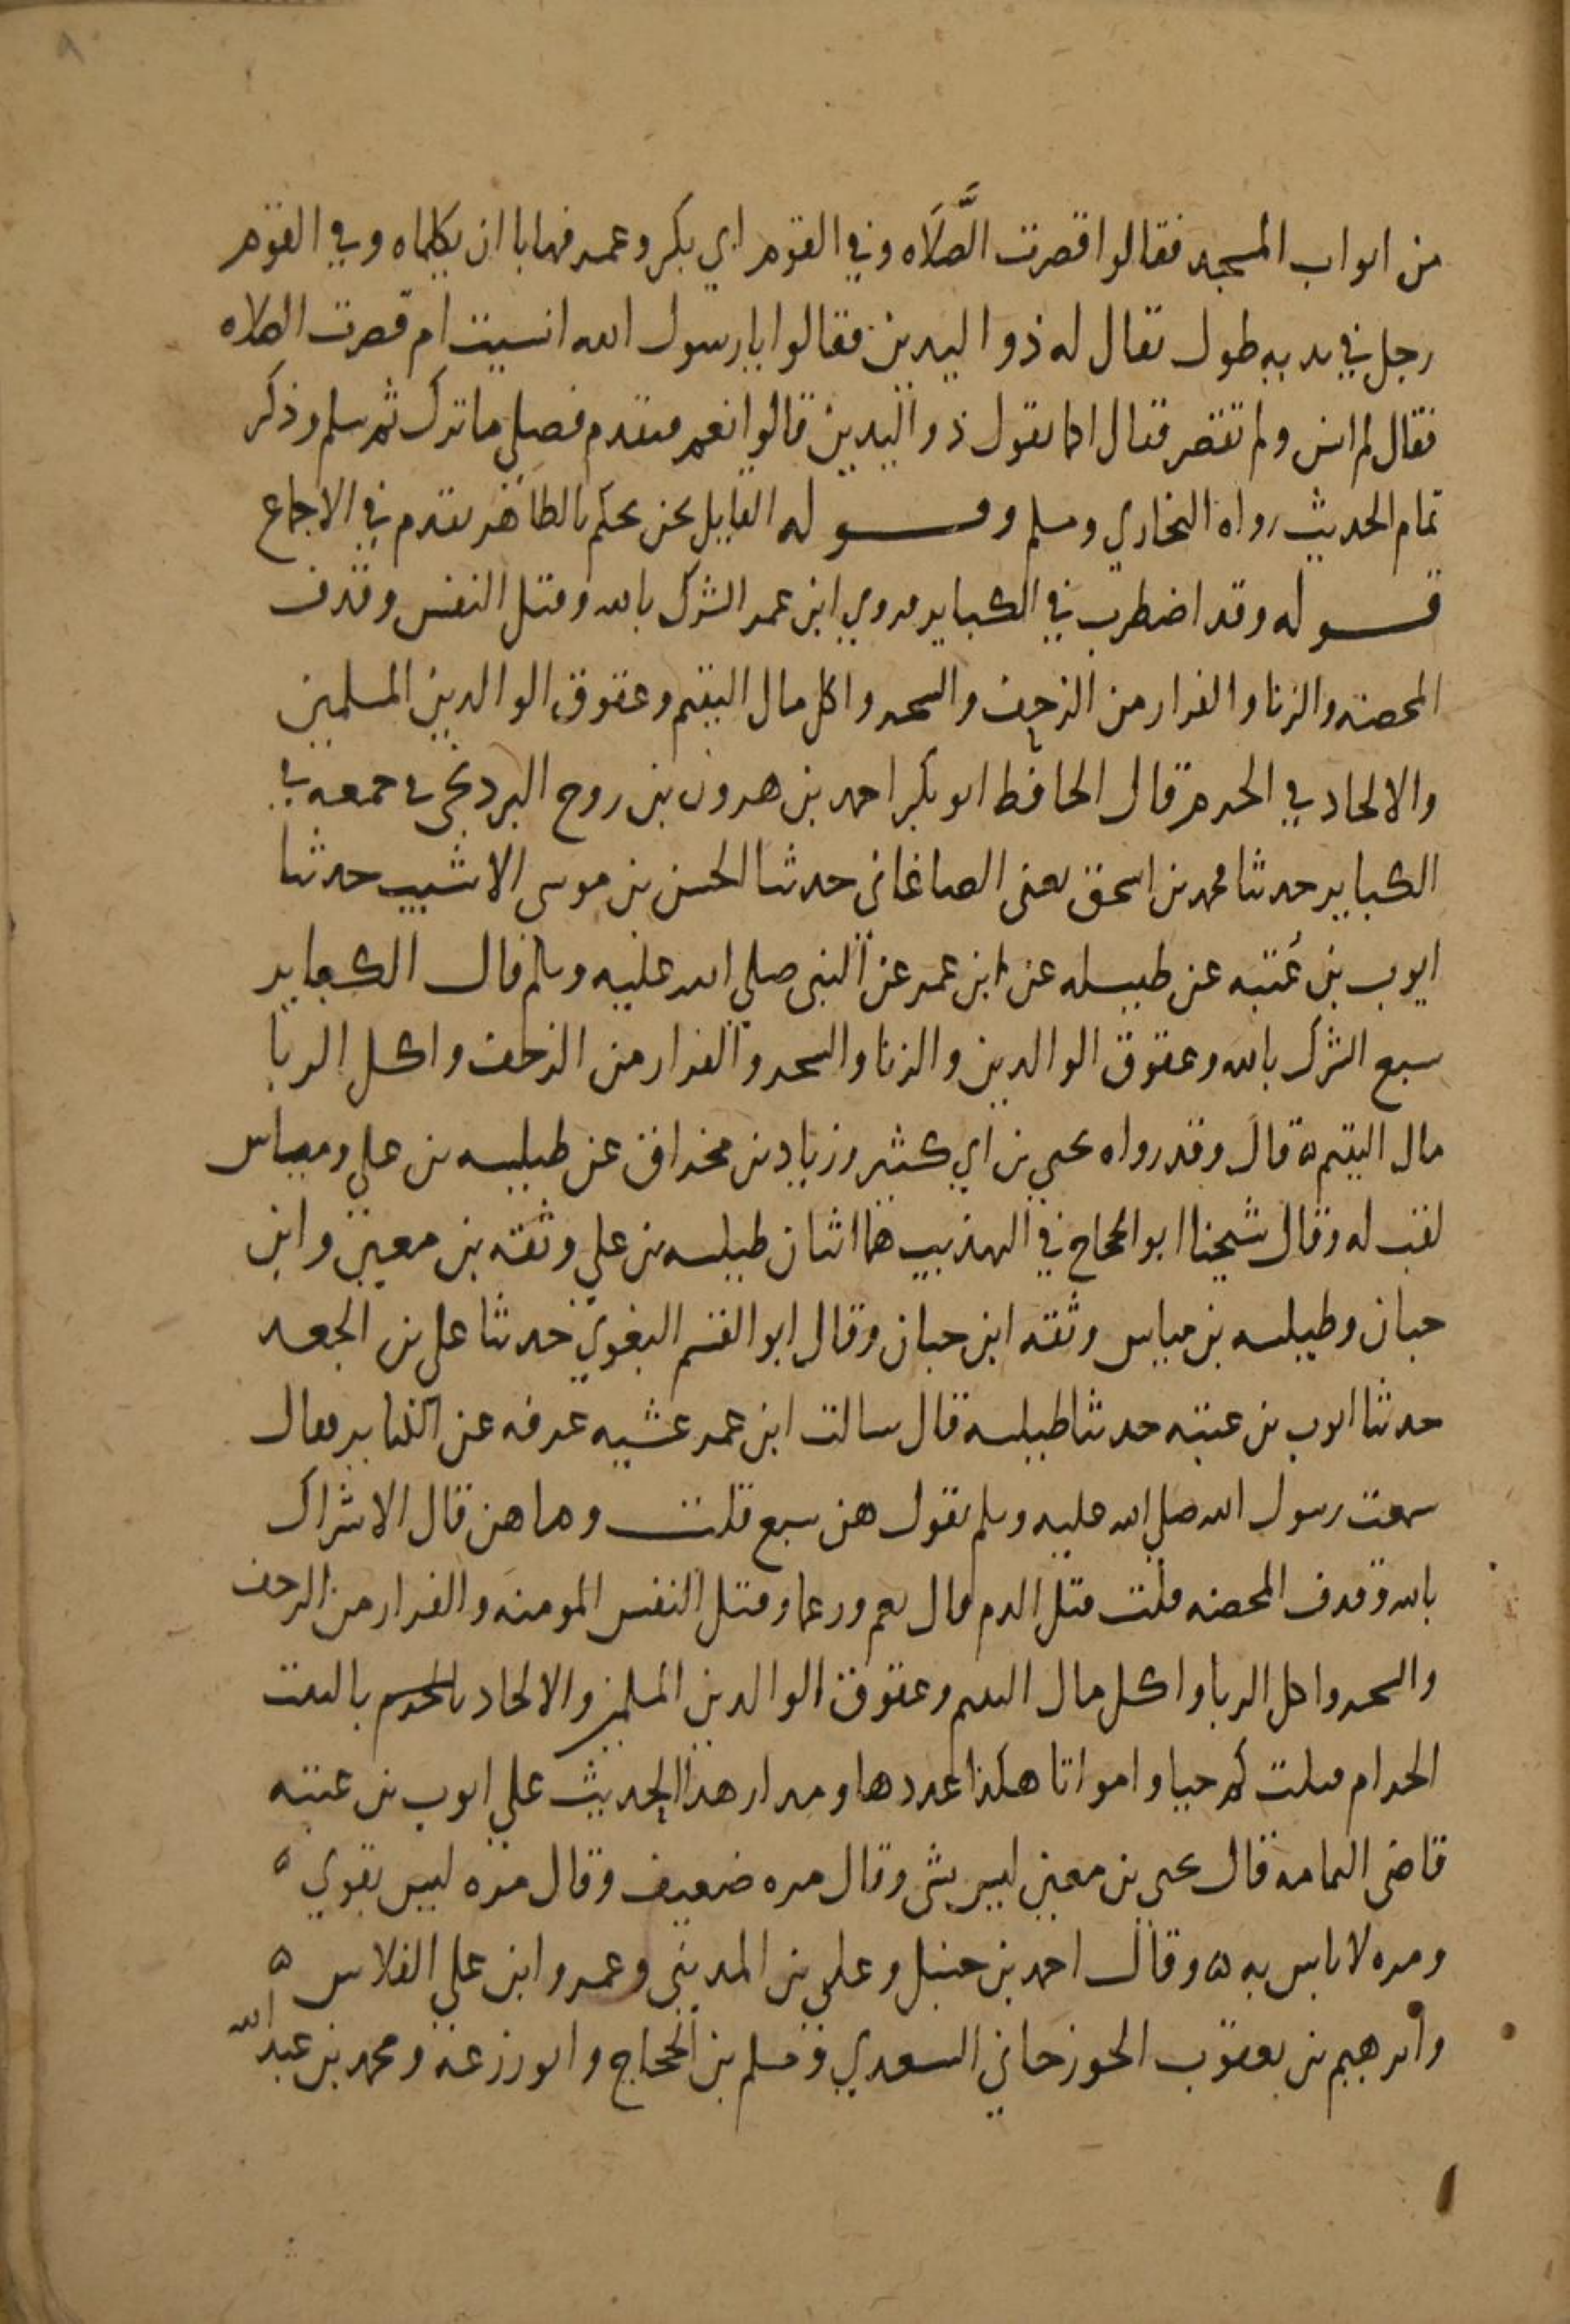 من ابواب المسجد فقالوا قصرت الصَّلَاه وفي القوم ابي بكر وعمر فهابا ان يكلماه وفي القوم
رجل في يديه طول يقال له ذو اليدين فقالوا يا رسول الله انسيت ام قصرت الصلاه
فقال لم انس ولم تقصر فقال اكما يقول ذو اليدين قالوا نعم فتقدم فصلي ما ترك ثم سلم وذكر
تمام الحديث رواه البخاري ومسلم وقوله القايل نحن نحكم بالظاهر تقدم في الاجماع
قوله وقد اضطرب في الكباير فروي ابن عمر الشرك بالله وقتل النفس وقذف
المحصنه والزنا والفرار من الزحف والسحر واكل مال اليتيم وعقوق الوالدين المسلمين
والالحاد في الحرم قال الحافظ ابو بكر احمد بن هرون بن روح البرديجي في جمعه في
الكباير حدثنا محمد بن اسحق يعني الصاغاني حدثنا الحسن بن موسى الاشيب حدثنا
ايوب بن عُتبه عن طيسله عن ابن عمر عن النبي صلي الله عليه وسلم قال الكباير
سبع الشرك بالله وعقوق الوالدين والزنا والسحر والفرار من الزحف واكل الربا
مال اليتيم ه قال وقد رواه يحيي بن ابي كثير وزياد بن مخراق عن طيلسه بن علي ومياس
لقب له وقال شيخنا ابو الحجاج في التهذيب هما اثنان طيلسه بن علي وثقه بن معين وابن
حبان وطيلسه بن مياس وثقه ابن حبان وقال ابو القسم البغوي حدثنا علي بن الجعد
حدثنا ايوب بن عتبه حدثنا طيلسه قال سالت ابن عمر عشيه عرفه عن الكباير فقال
سمعت رسول الله صلي الله عليه وسلم يقول هن سبع قلت وما هن قال الاشراك
بالله وقذف المحصنه قلت قتل الدم قال نعم ورغما وقتل النفس المومنه والفرار من الزحف
والسحر واكل الربا واكل مال اليتيم وعقوق الوالدين المسلمين والالحاد بالحرم بالبيت
الحرام قبلتكم حيا وامواتا هكذا عددها ومدار هذا الحديث علي ايوب بن عتبه
قاضي اليمامه قال يحيى بن معين ليس بشي وقال مره ضعيف وقال مره ليس بقوي ه
ومره لا باس به ه وقال احمد بن حنبل وعلي بن المديني وعمرو ابن علي الفلاس ه
وابرهيم بن يعقوب الجوزجاني السعدي ومسلم بن الحجاج وابو زرعه ومحمد بن عبد الله